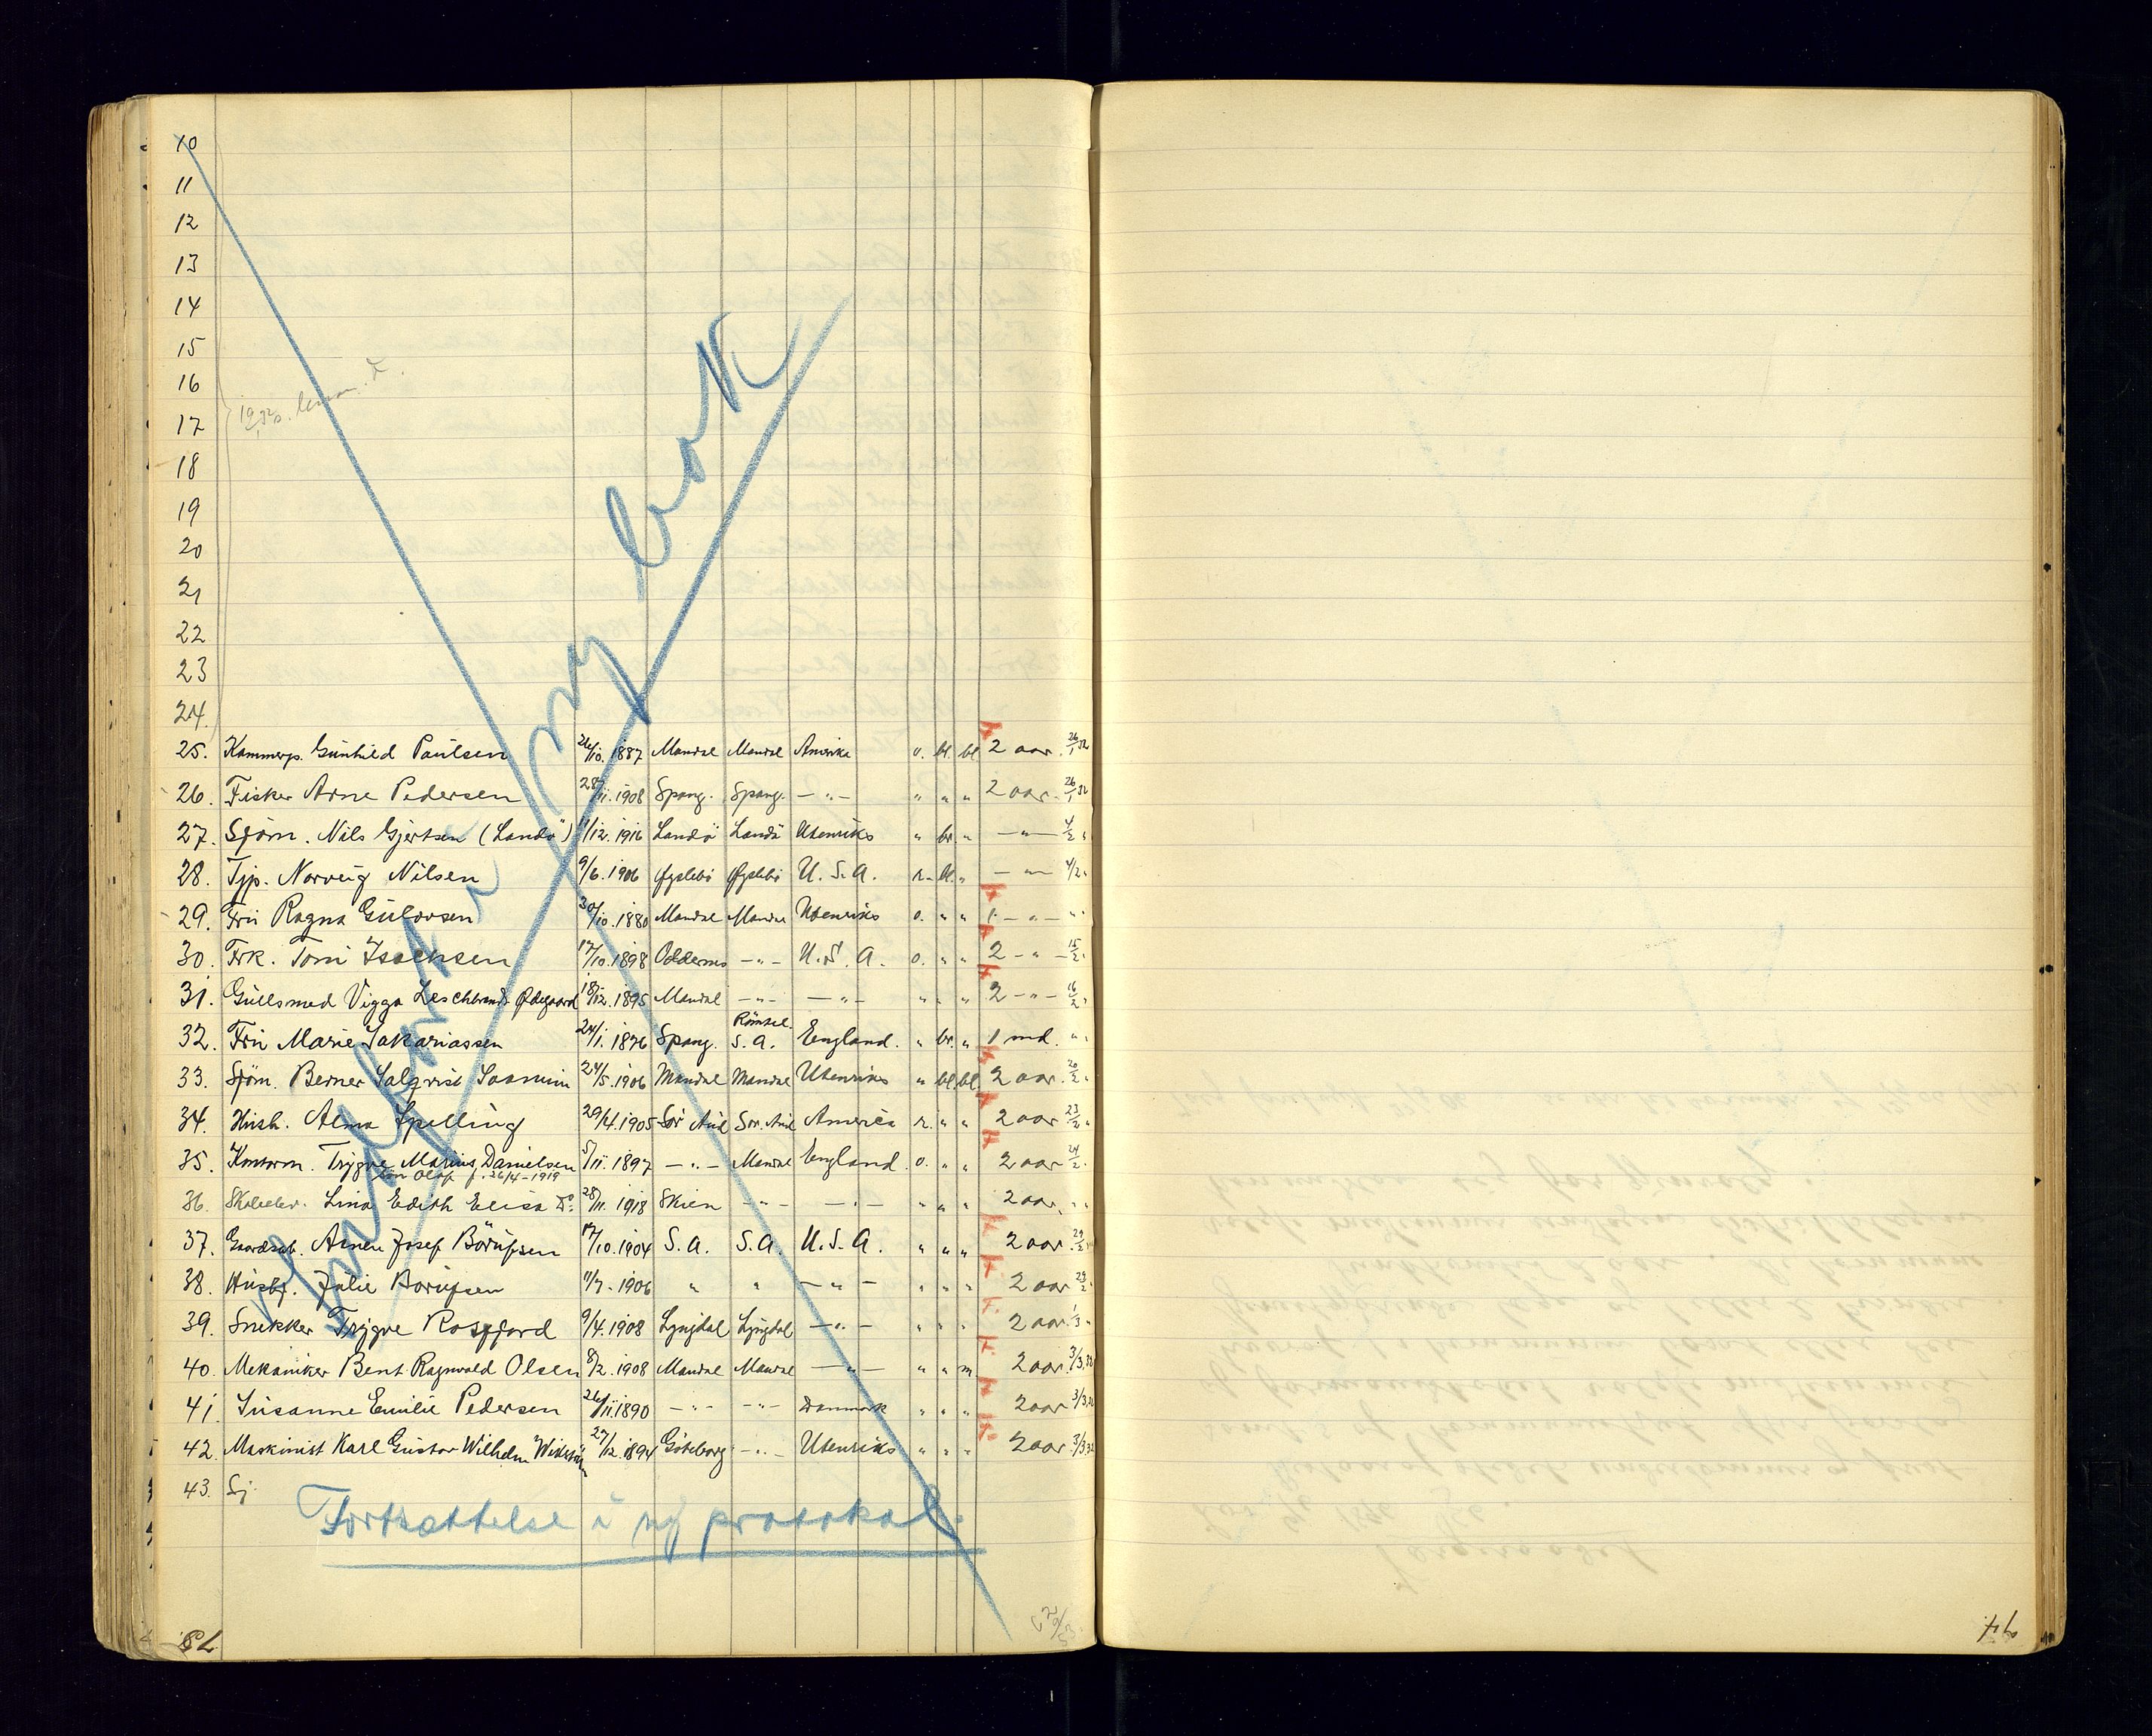 10
11
12
13
14
15
16
17
18
19
20
21
22
23
24.
25. Kammerp. Gunhild Paulsen 26/10.1887 Mandal Mandal Amerika o. bl. bl 2 aar. 26/1 32
26. Fisker Arne Pedersen 28/11.1908 Spang. Spang. — „ — „ „ „ 2 aar. 26/1 32
27. Sjöm. Nils Gjertsen (Landö) 11/12.1916 Landö Landö Utenriks „ br. „ — „ — 4/2 „
28. Tjp. Norveig Nilsen 9/6.1906 Øyslebö Øyslebö U.S.A. r. bl. „ — „ — 4/2 „
29. Fru Ragna Gulovsen 30/10.1880 Mandal Mandal Utenriks o. „ „ 1. — „ — „ „
30. Frk. Tomi Isachsen 17/10.1898 Oddernes — „ — U.S.A. o. „ „ 2 — „ — 15/2 „
31. Gullsmed Viggo Leschbrandt Ødegaard 18/12.1895 Mandal — „ — — „ — „ „ „ 2 — „ — 16/2 „
32. Fru Marie Sakariassen 24/1.1876 Spang. S.A. England. „ br. „ 1 md. „ „
33. Sjöm. Berner Salqvist 24/5.1906 Mandal Mandal Utenriks „ bl. bl. 2 aar. 20/2 „
34. Hush. Alma Spilling 29/4.1905 Sör Aud Sör. Aud America r. „ „ 2 aar 23/2 „
35. Kontorm. Trygve Marius Danielsen 5/11.1897 — „ — Mandal England. o. „ „ 2 aar 24/2.
Olaf f. 26/4-1919
36. Skoleelev. Lina Edith Elisa Do. 28/11.1918 Skien — „ — — „ — „ „ „ 2 aar. „ „
37. Gaardsarb. Arne Josef Börufsen 17/10.1904 S.A. S.A. U.S.A. „ „ „ 2 aar. 29/2 „
38. Husf. Julie Börufsen 11/7.1906 „ „ — „ — „ „ „ 2 aar 29/2.
39. Snekker Trygve Rosfjord 9/4.1908 Lyngdal Lyngdal — „ — „ „ „ 2 aar. 1/3 „
40. Mekaniker Bent Ragnvald Olsen 8/2.1908 Mandal Mandal — „ — „ „ m 2 aar 3/3.32
41. Susanne Emilie Pedersen 26/11.1890 — „ — — „ — Danmark „ „ „ 2 aar 3/3.32
42. Maskinist Karl Gustav Wilhelm Wikström 27/12.1894 Göteborg — „ — Utenriks „ „ „ 2 aar 3/3.32
43. Sj
ny bok
Fortsættelse i ny protokol.
73
74